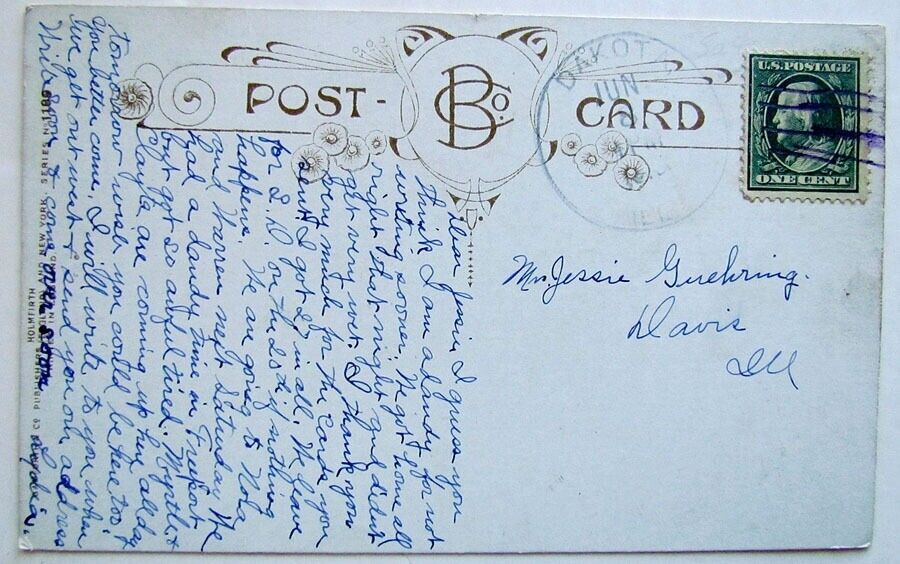 POST-
B Co.
CARD
U.S. POSTAGE
ONE CENT
DAKOT
JUN
Jessie Guehring.
Davis
Ill
Dear Jessie I guess you
think I am a dandy for not
writing sooner. We got home all
right that night and didn't
get very wet. I thank you
very much for the cards you
sent. I got 25 in all. We leave
for S.D. on the 20 if nothing
happens. We are going to Nola
and Warren next Saturday. We
had a dandy time in Freeport
but got so awful tired. Myrtle &
Clayta are coming up here all day
tomorrow wish you could be here too.
You better come. I will write to you when
we get out west & send you our address
Write soon & come over soon
HOLMFIRTH
PUBLISHERS NEW YORK SERIES N